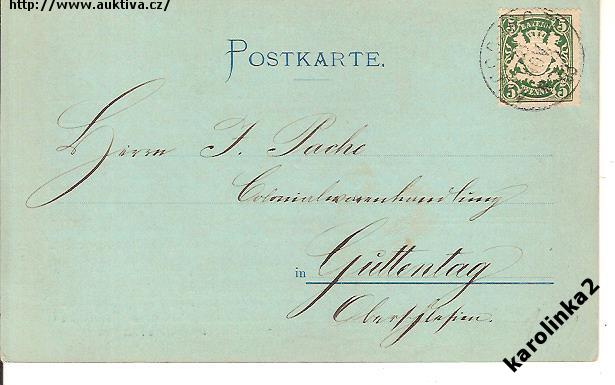 http://www.auktiva.cz/
POSTKARTE.
5 BAYERN 5
5 PFENNIG 5
Herrn J. Pache
Colonialwarenhandlung
in Guttentag
Oberschlesien.
karolinka2